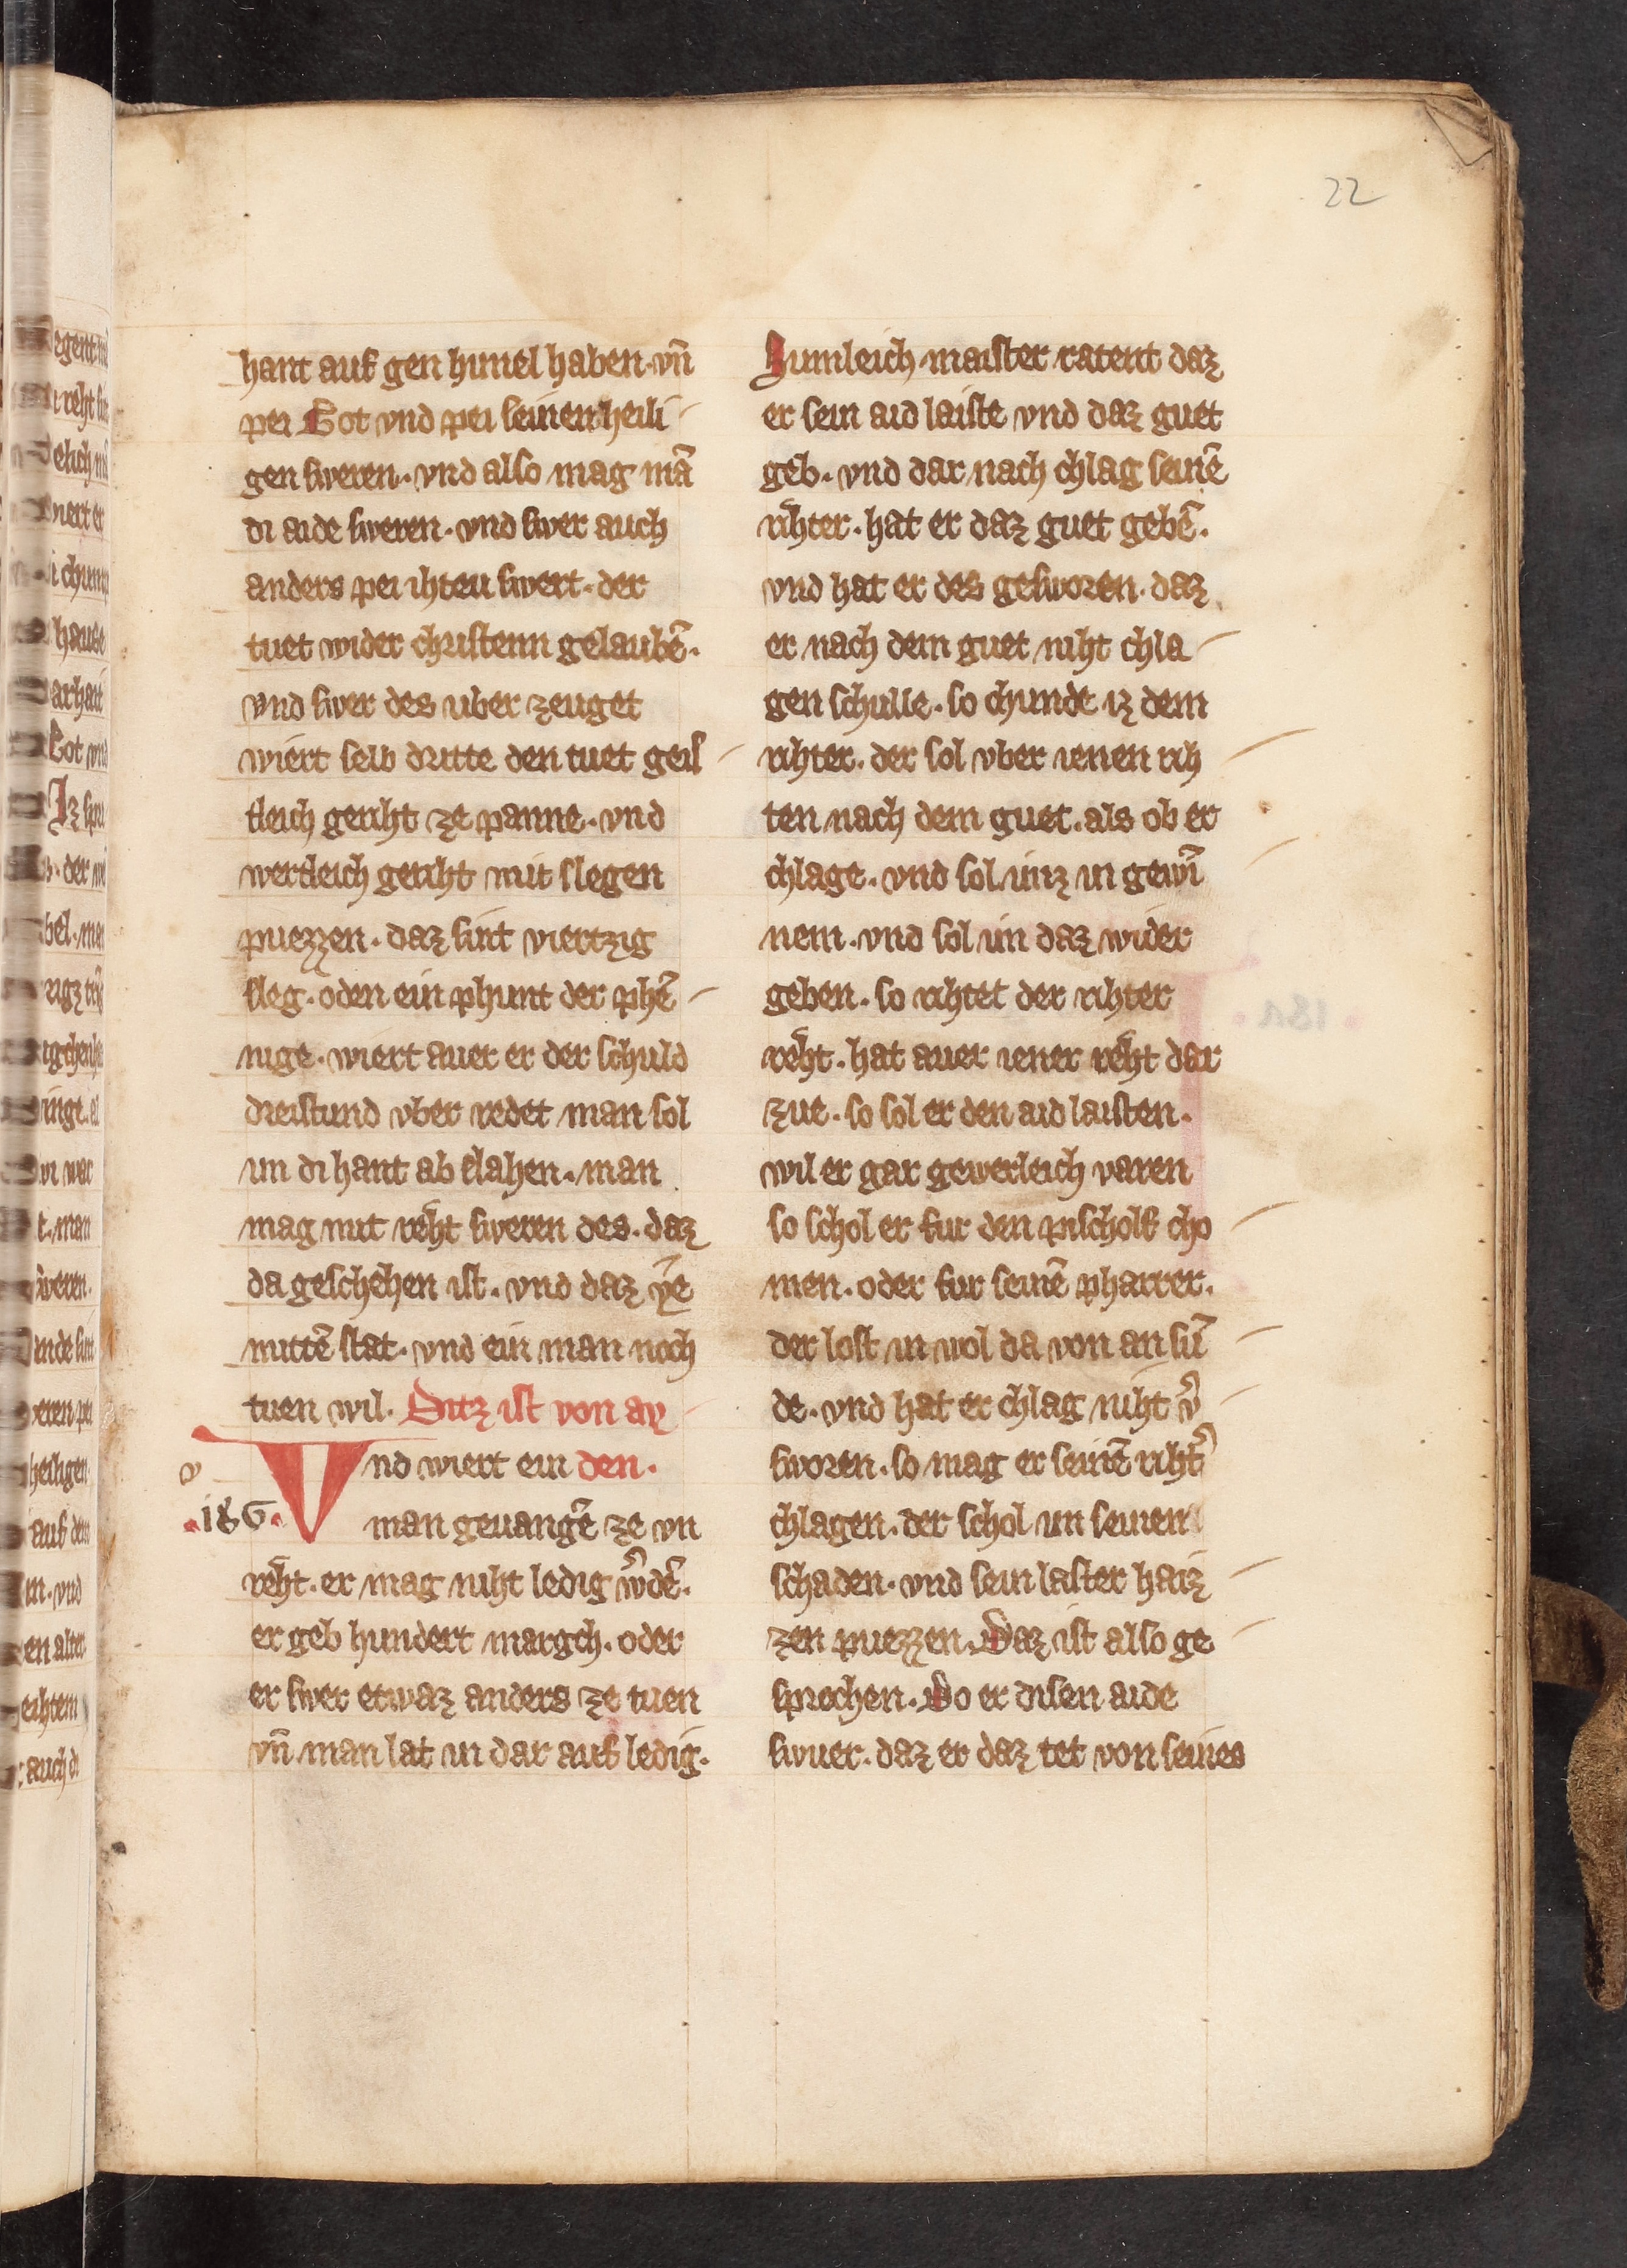 22
hant auf gen himel haben. vn̄
pei Got vnd pei seinen heili-
gen sweren. vnd also mag mā
di aide sweren. vnd swer auch
anders pei ihteu swert. der
tuet wider christenn gelaubē.
vnd swer des uber zeuget
wiert selb dritte den tuet geis-
tleich geriht ze panne. vnd
wertleich geriht mit slegen
puezzen. daz sint viertzig
sleg. oden ein phunt der phē-
nige. wiert auer er der schuld
dreistund vber redet man sol
im di hant ab slahen. man
mag mit reht sweren des. daz
da geschehen ist. vnd daz
nuttē stat. vnd ein man noch
tuen wil. Ditz ist von ay
Vnd wiert ein den.
.186. man geuangē ze vn
reht. er mag niht ledig w̉dē.
er geb hundert margch. oder
er swer etwaz anders ze tuen
vn̄ man lat in dar auf ledig.
Sumleich maister ratent daz
er sein aid laiste vnd daz guet
geb. vnd dar nach chlag seinē
rihter. hat er daz guet gebē.
vnd hat er des gesworen. daz
er nach dem guet niht chla-
gen schulle. so chunde iz dem
rihter. der sol vber ienen rih-
ten nach dem guet. als ob er
chlage. vnd sol imz in gewī-
nem. vnd sol im daz wider
geben. so rihtet der rihter
reht. hat auer iener reht dar
zue. so sol er den aid laisten.
wil er gar gewerleich varen
so schol er fur den pischolf cho-
men. oder fur seinē pharrer.
der lost in wol da von an sū-
de. vnd hat er chlag niht v̉-
sworen. so mag er seinē riht̉
chlagen. der schol im seinen
schaden. vnd sein laster haiz-
zen puezzen. Daz ist also ge-
sprechen. Do er disen aide
swuer. daz er daz tet von seines